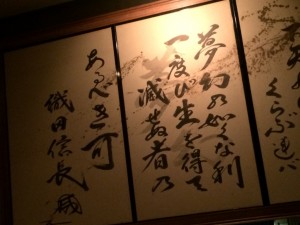 くらぶれバ
夢幻の如くな利
一度び生を得て
滅せぬ者乃
あるべき可
織田信長